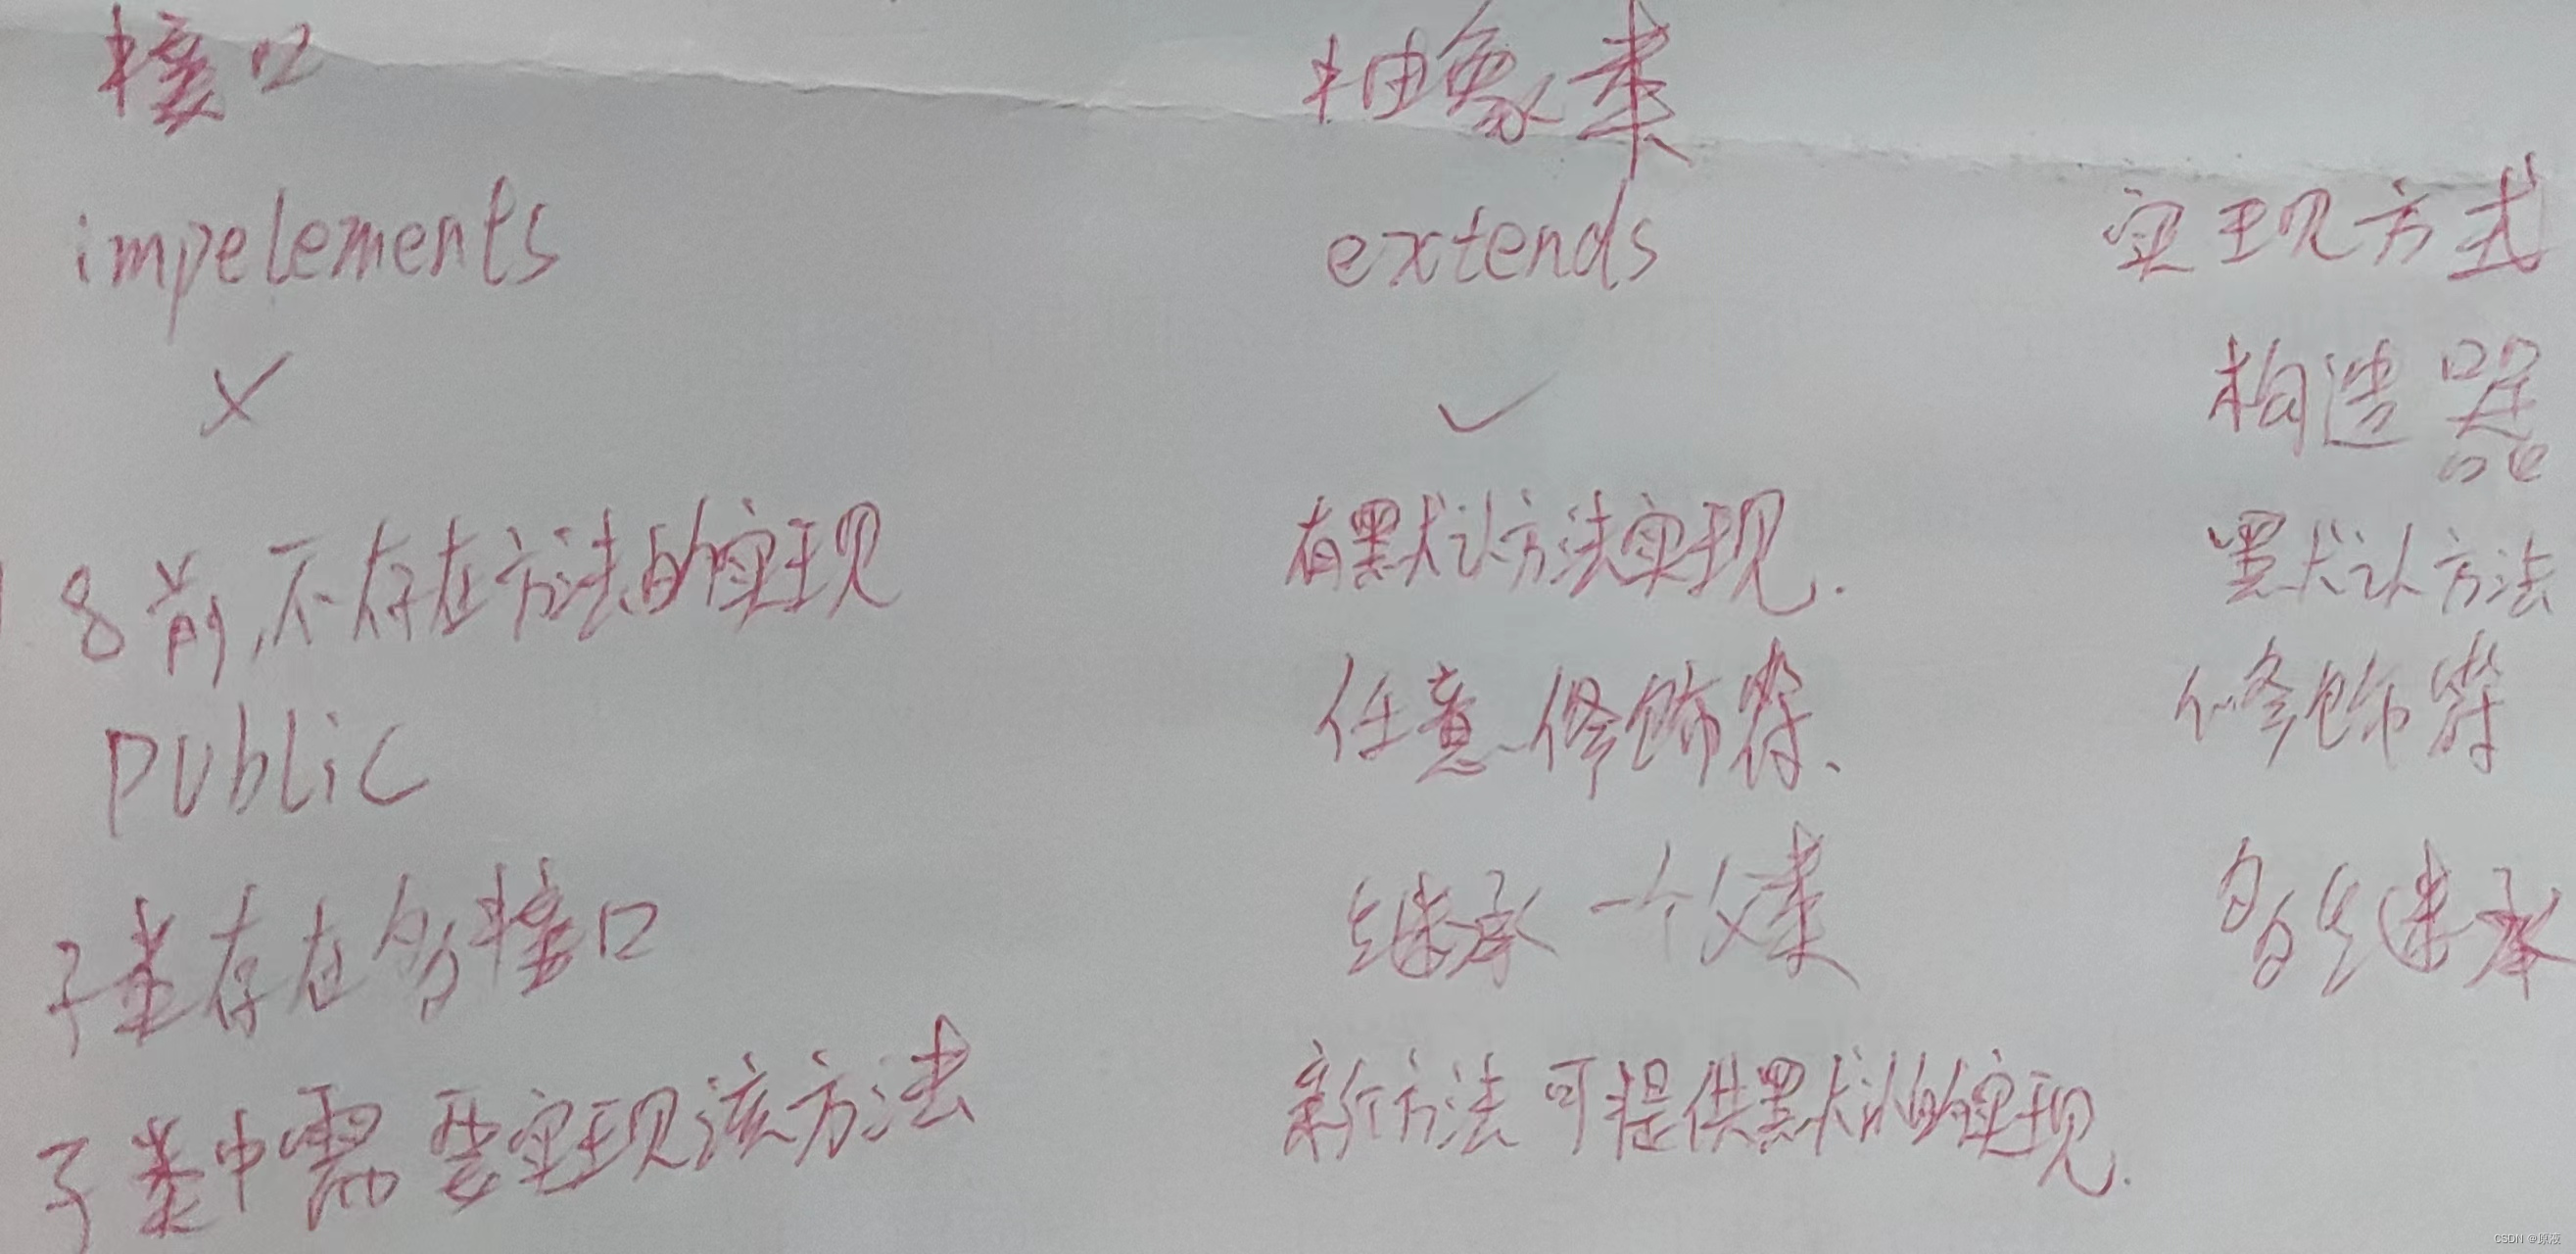 接口 抽象类
impelements extends 实现方式
× ✓ 构造器
8前,不存在方法的实现 有默认方法实现. 默认方法
public 任意修饰符、 修饰符
子类存在多接口 继承一个父类 多继承
子类中需要实现该方法 新方法可提供默认的实现.
CSDN @原液